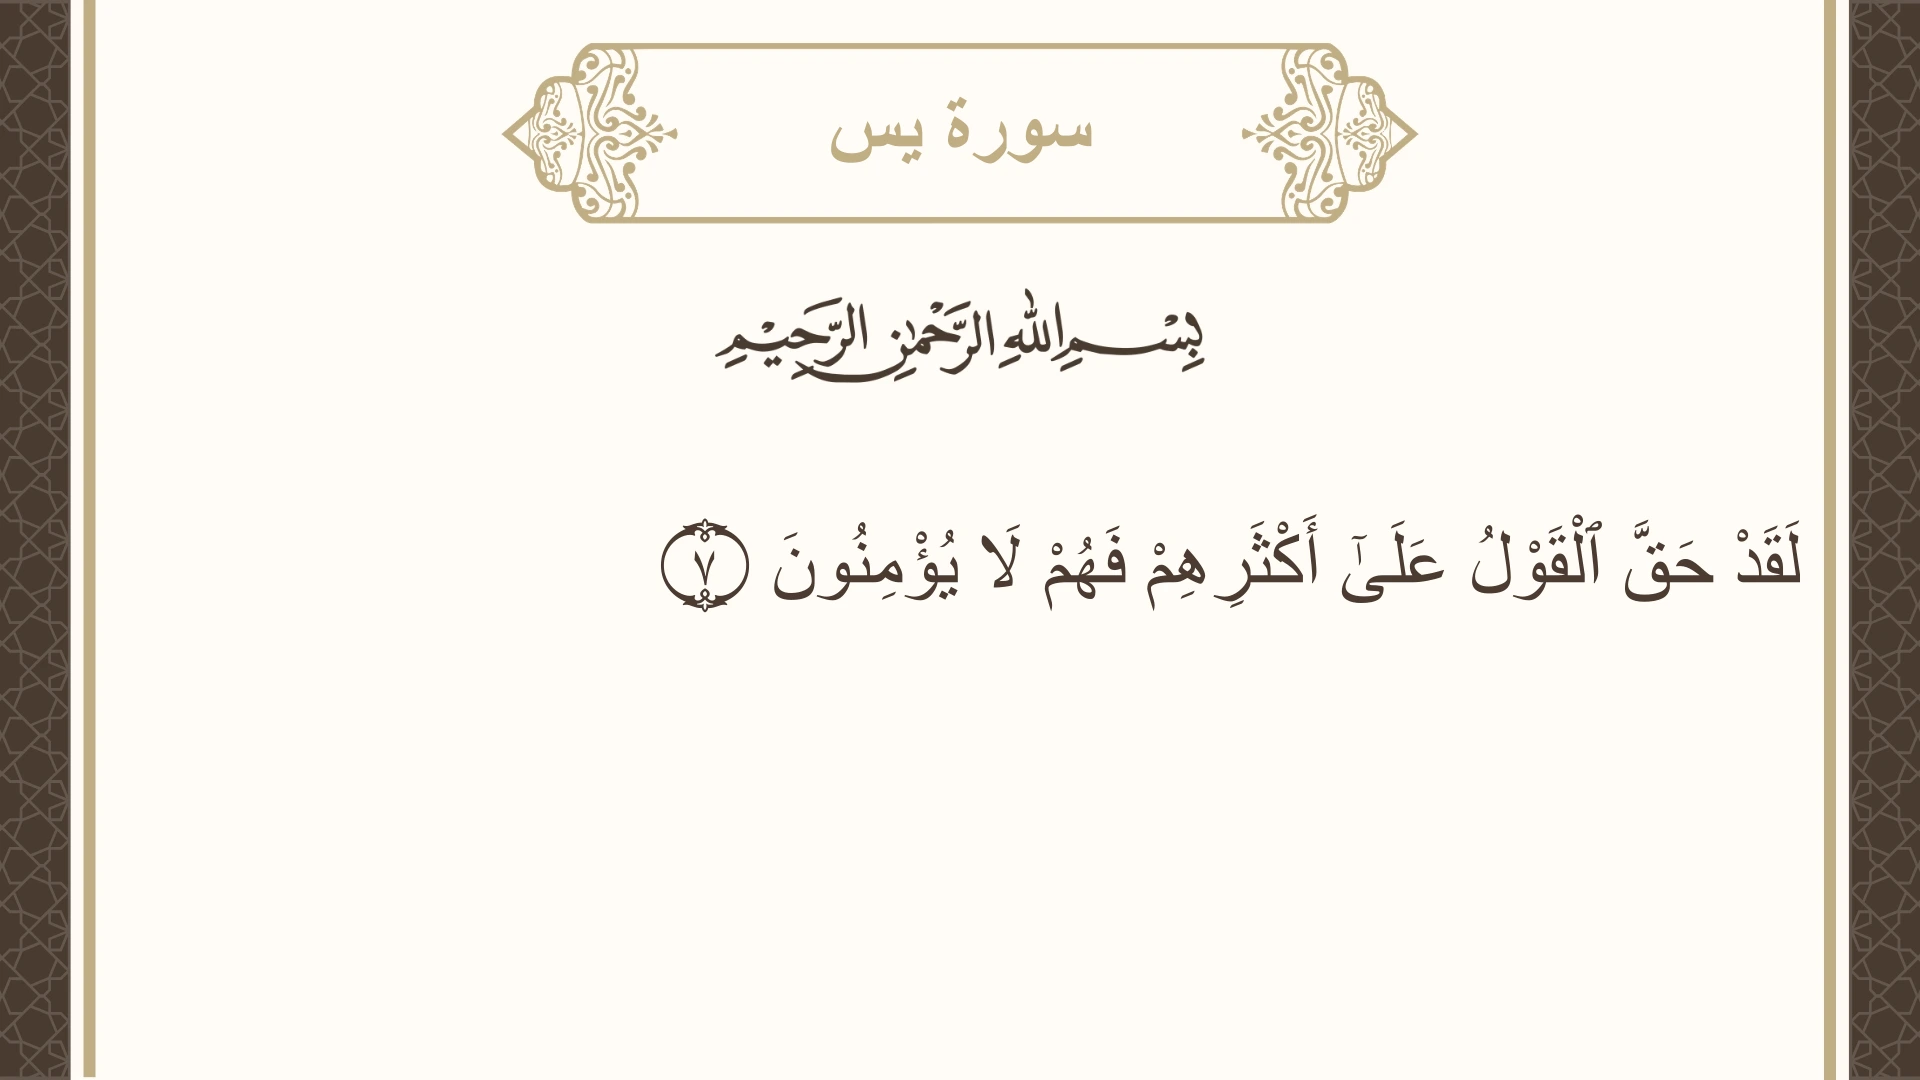 سورة يس
بِسْمِ اللهِ الرَّحْمٰنِ الرَّحِيْمِ
لَقَدْ حَقَّ ٱلْقَوْلُ عَلَىٰٓ أَكْثَرِهِمْ فَهُمْ لَا يُؤْمِنُونَ ٧